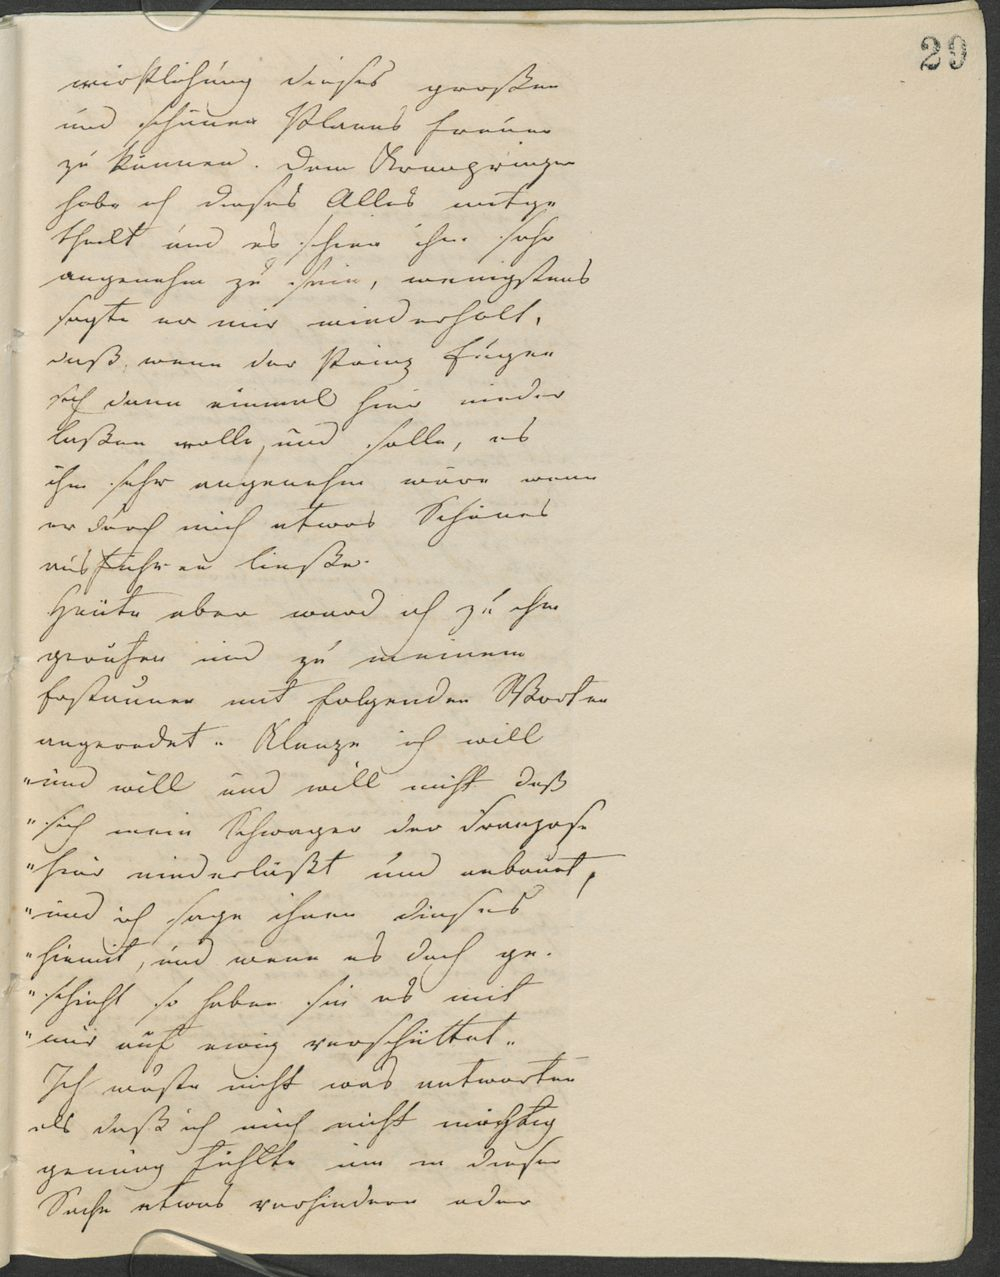 29
wirklichung dieses großen
und schönen Planes freuen
zu können. Dem Kronprinzen
habe ich dieses Alles mitge
theilt und es schien ihm sehr
angenehm zu sein, wenigstens
sagte er mir wiederholt,
daß, wenn der Prinz Eugen
sich dann einmal hier nieder
laßen wolle, und solle, es
ihm sehr angenehm wäre wenn
er durch mich etwas Schönes
ausführen ließe.
Heute aber ward ich zu ihm
gerufen und zu meinem
Erstaunen mit folgenden Worten
angeredet „Klenze ich will
„und will und will nicht daß
„sich mein Schwager der Franzose
„hier niederläßt und anbauet,
„und ich sage ihnen dieses
„hiemit, und wenn es doch ge-
„schieht so haben sie es mit
„mir auf ewig verschüttet.„
Ich wußte nicht was antworten
als daß ich mich nicht mächtig
genung fühlte um in dieser
Sache etwas verhindern oder